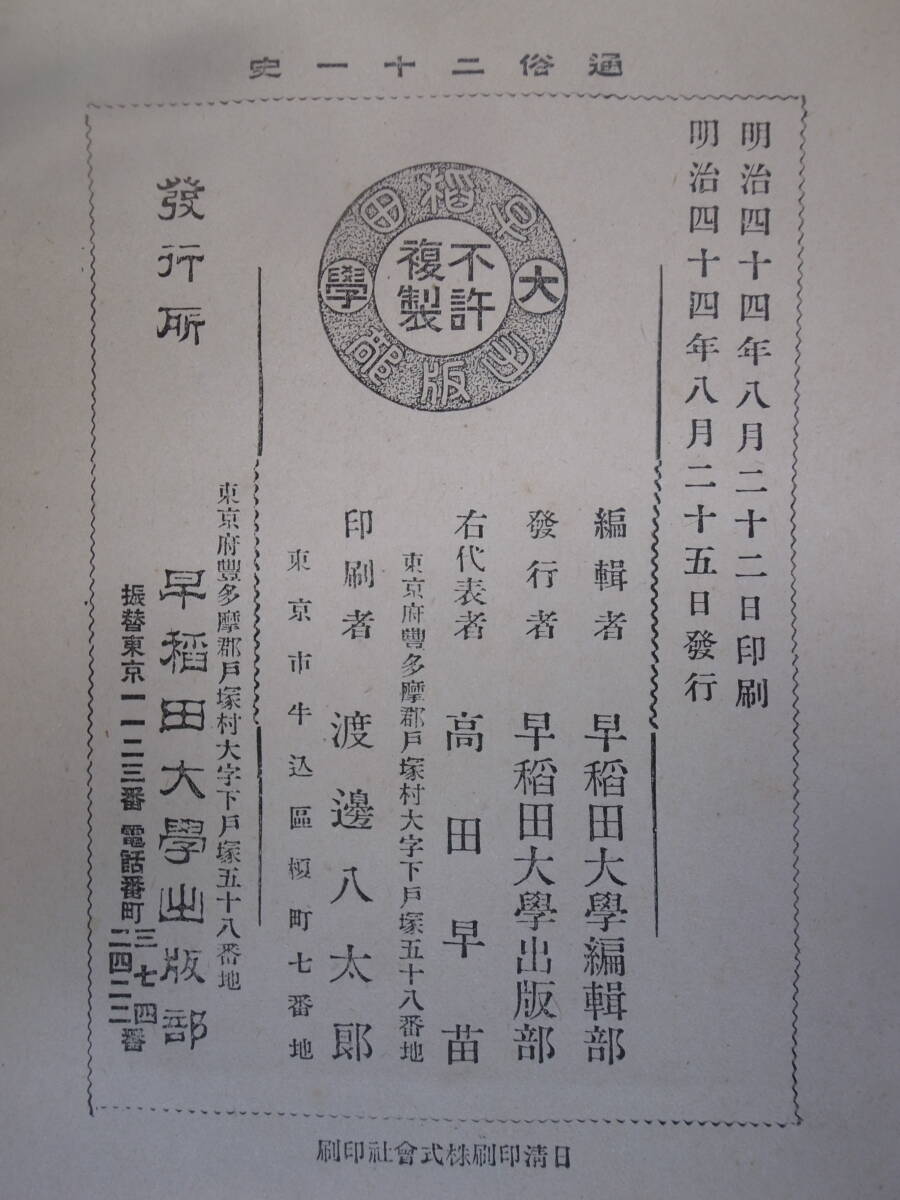 通俗二十一史
明治四十四年八月二十二日印刷
明治四十四年八月二十五日發行
早稻田
大學
出版部
不許
複製
編輯者 早稻田大學編輯部
發行者 早稻田大學出版部
右代表者 高田早苗
東京府豐多摩郡戸塚村大字下戸塚五十八番地
印刷者 渡邊八太郎
東京市牛込區榎町七番地
發行所
東京府豐多摩郡戸塚村大字下戸塚五十八番地
早稻田大學出版部
振替東京一一二三番 電話番町三七四二四二二番
日清印刷株式會社印刷